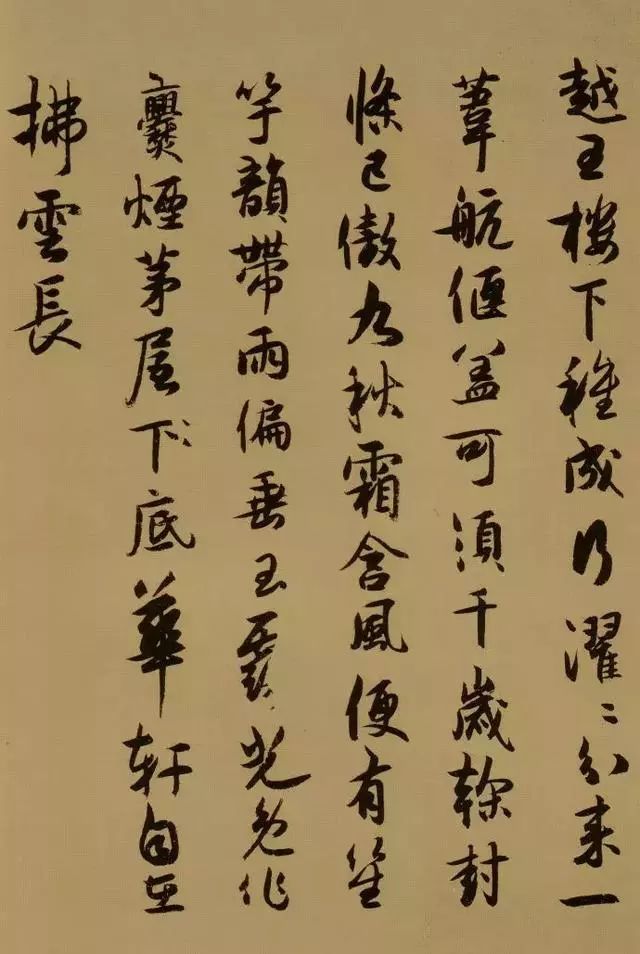 越王樓下種成行濯〻分來一
葦航偃盖可須千歲幹封
條已傲九秋霜含風便有笙
竽韻帶雨偏垂玉露光免作
爨煙茅屋下底華軒自在
拂雲長